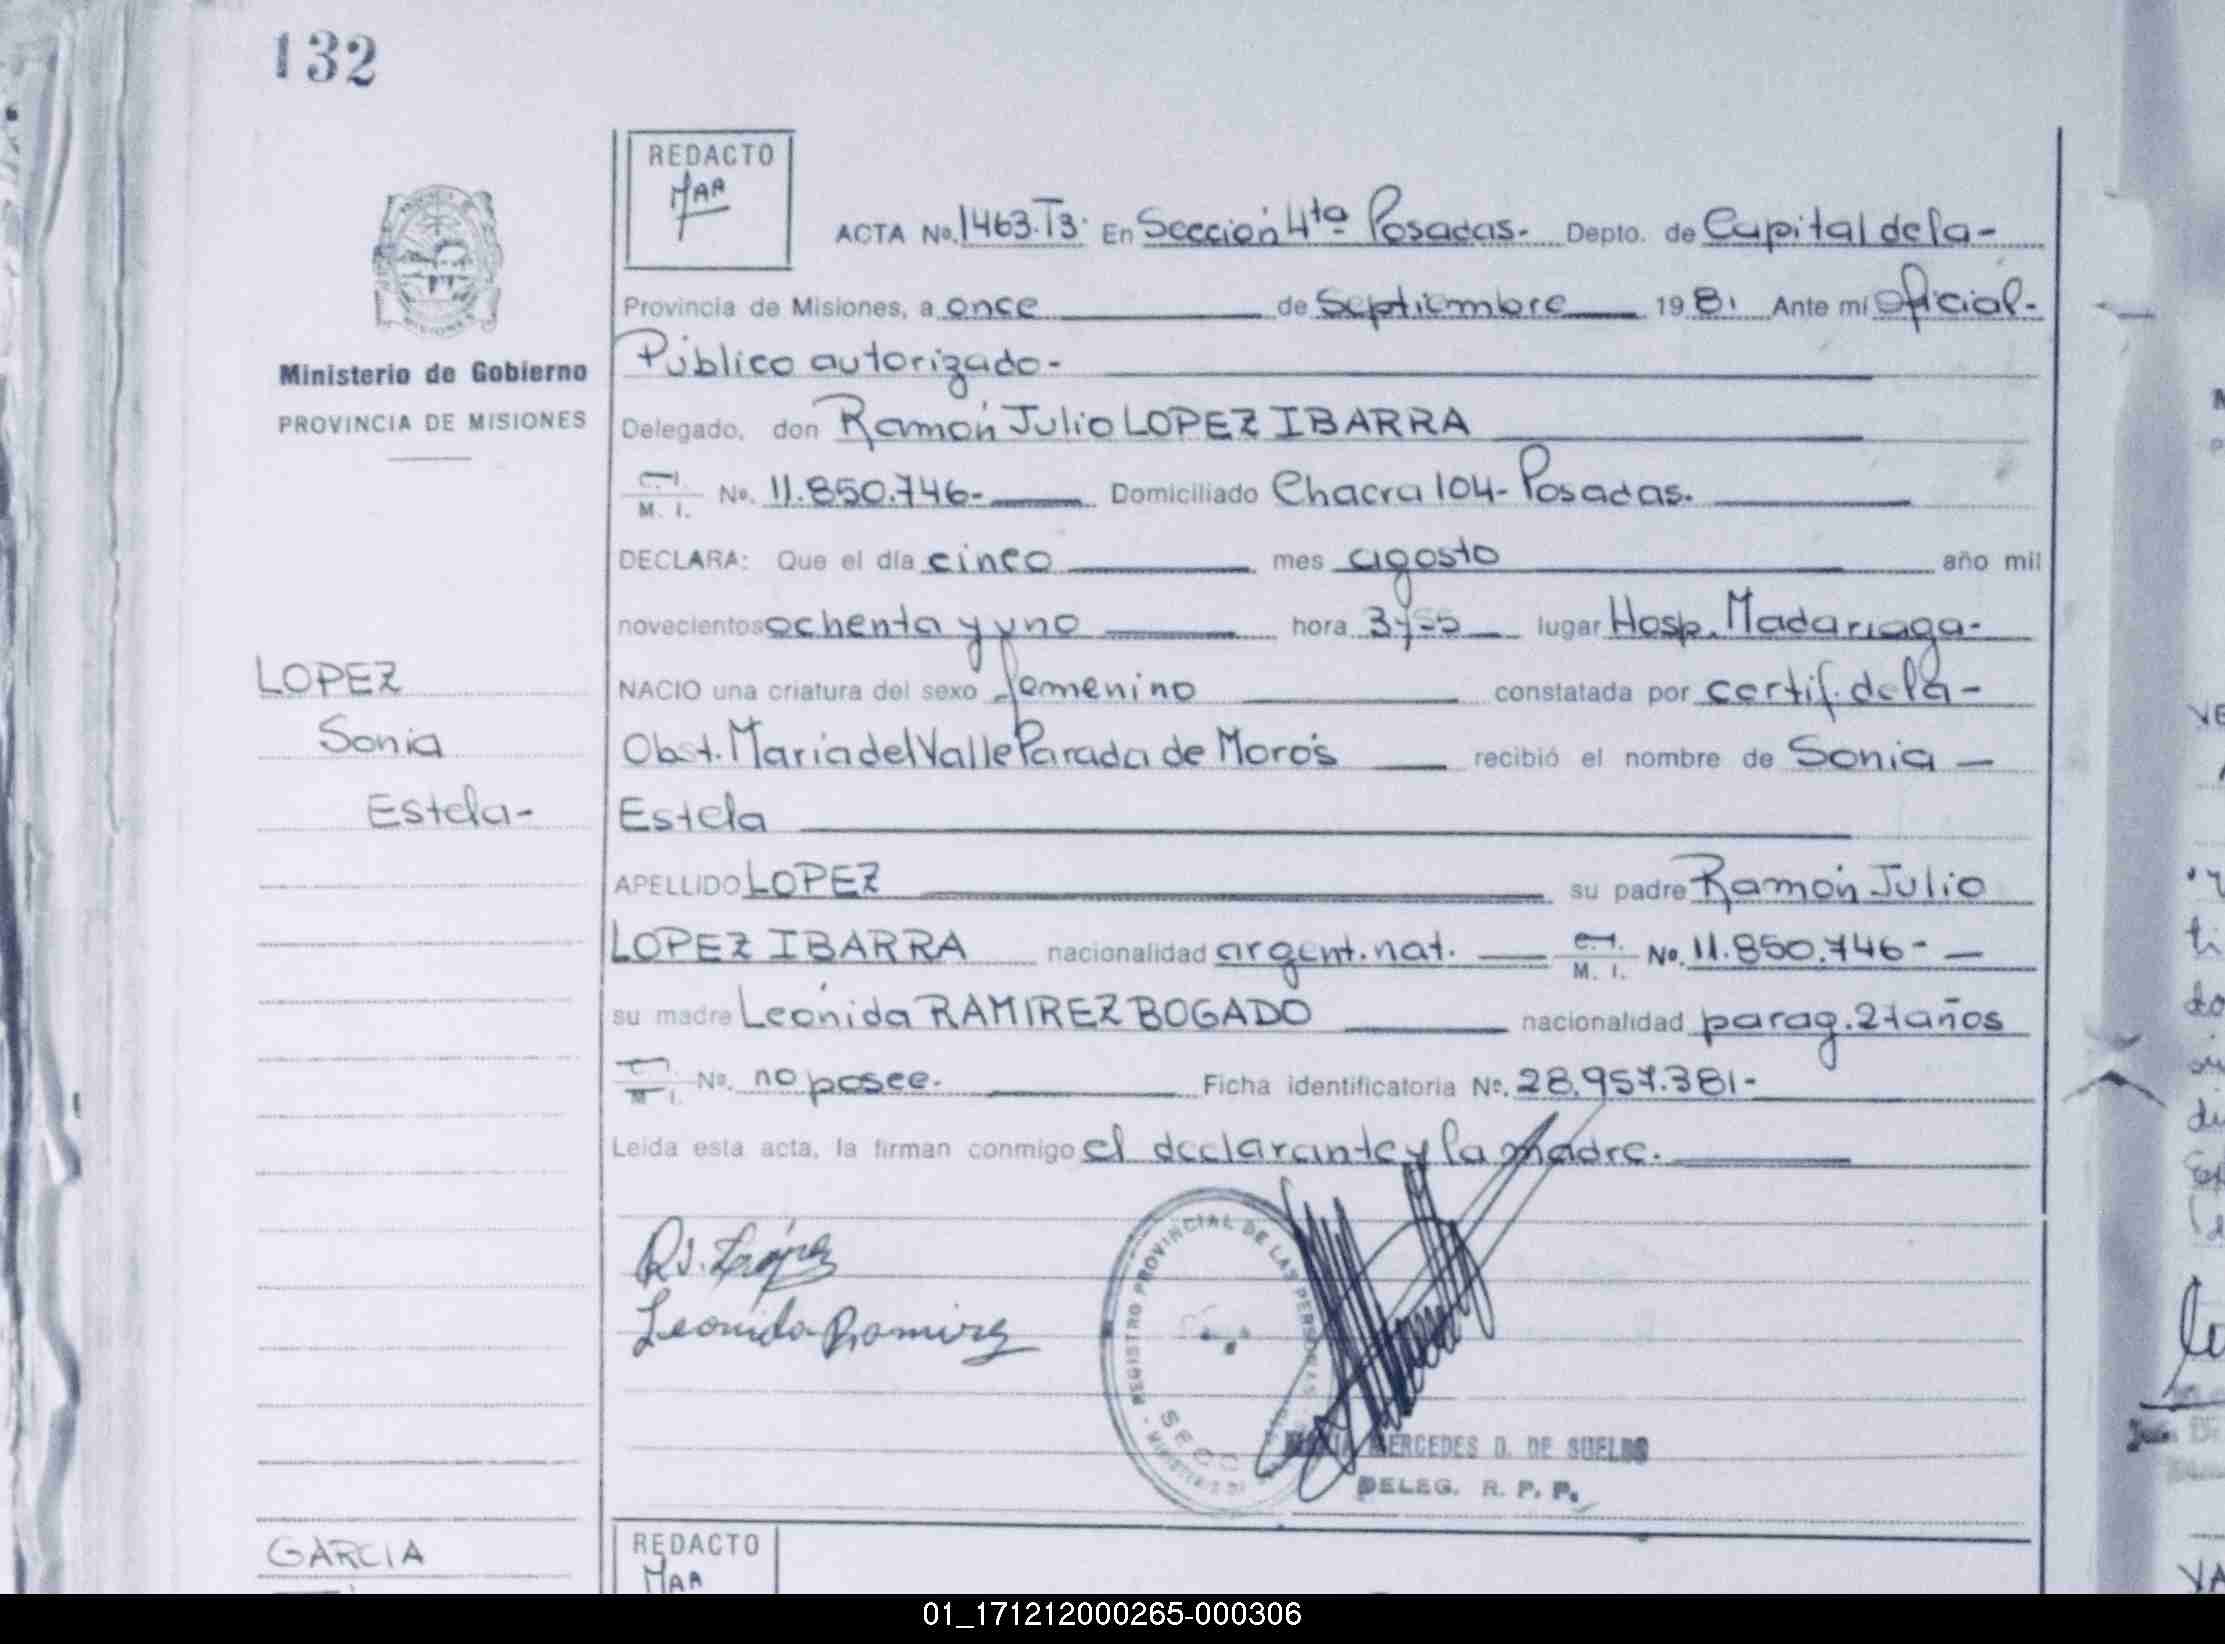 132
REDACTO
MAA
ACTA No. 1463.T3. En Sección 4ta Posadas. Depto. de Capital de la-
Provincia de Misiones, a once de Septiembre 1981 Ante mí Oficial-
Ministerio de Gobierno
PROVINCIA DE MISIONES
Público autorizado-
Delegado, don Ramón Julio LOPEZ IBARRA
M. I. No. 11.850.746- Domiciliado Chacra 104- Posadas.
DECLARA: Que el día cinco mes agosto año mil
novecientos ochenta y uno hora lugar Hosp. Madariaga-
LOPEZ
Sonia
Estela-
NACIO una criatura del sexo femenino constatada por certif. de la-
Obst. María del Valle Parada de Morós recibió el nombre de Sonia
Estela
APELLIDO LOPEZ su padre Ramón Julio
LOPEZ IBARRA nacionalidad argent. nat. M. I. No. 11.850.746-
su madre Leónida RAMIREZ BOGADO nacionalidad parag. 27 años
M. I. No. no posee. Ficha identificatoria No. 28.957.381-
Leída esta acta, la firman conmigo el declarante y la madre.
R.J. López
Leonida Ramirez
REGISTRO PROVINCIAL DE LAS PERSONAS
MERCEDES D. DE SUELDO
DELEG. R. P. P.
GARCIA
REDACTO
MAA
01_171212000265-000306